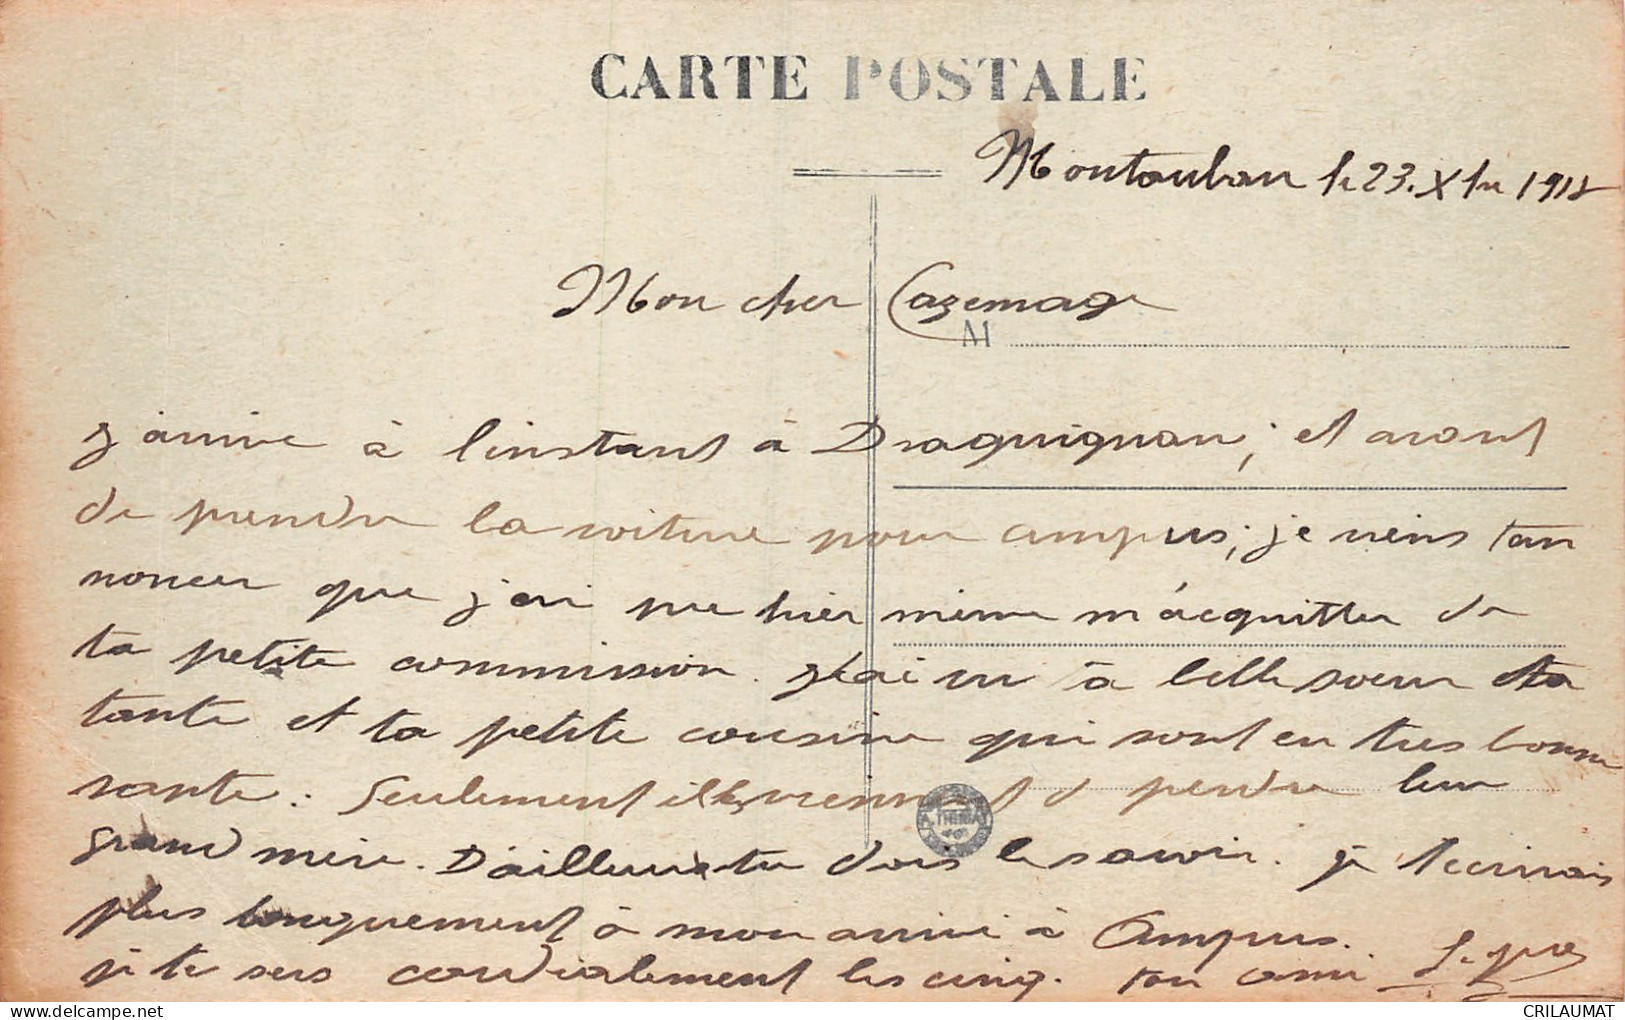 CARTE POSTALE
Montauban le 23. Xbre 1918
Mon cher Cazemage
M
J'arrive à l'instant à Draguignan, et avant
de prendre la voiture pour ampus, je viens t'an
noncer que j'ai pu hier même m'acquitter de
ta petite commission. J'ai vu ta belle soeur ta
tante et ta petite cousine qui sont en tres bonne
sante. Seulement illes viennent d perdre leur
grand mère. D'ailleurs tu dois le savoir. je t'ecrirais
plus longuement à mon arrivé à Ampus.
je te sers cordialement les cinq. ton ami
CRILAUMAT